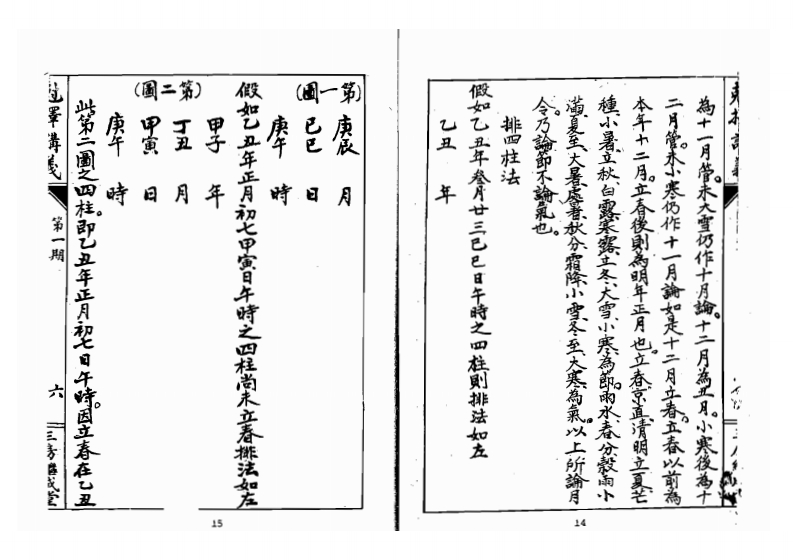 為十一月管。未大雪仍作十月論。十二月為丑月。小寒後為十
二月管。未小寒仍作十一月論如是十二月立春立春以前為
本年十二月。立春後則為明年正月也。立春、京直、清明、立夏、芒
種、小暑、立秋、白露、寒露、立冬、大雪、小寒、為節。雨水、春分、穀雨、小
滿、夏至、大暑、處暑、秋分、霜降、小雪、冬至、大寒、為氣。以上所論月
令乃論節不論氣也。
排四柱法
假如乙丑年叁月廿三己巳日午時之四柱則排法如左
乙丑 年
14
(第一圖)
庚辰 月
己巳 日
庚午 時
假如乙丑年正月初七甲寅日午時之四柱尚未立春排法如左
(第二圖)
甲子 年
丁丑 月
甲寅 日
庚午 時
此第二圖之四柱。即乙丑年正月初七日午時。因立春在乙丑
講義
第一期
六
三房繼成堂
15